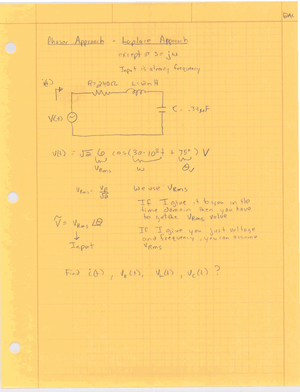 Phasor Approach - Laplace Approach
except s = jω
Input is already frequency
R=240Ω L=2mH
V(t)
C =
v(t) = √2 6 cos(30·10³t + 75°) V
VRMS ω θ
VRMS = we use VRMS
If I give it to you in the
time domain then you have
to get the VRMS value
Ṽ = VRMS ∠θ
If I give you just voltage
and frequency, you can assume
VRMS
Input
Find i(t), vR(t), vL(t), vC(t) ?